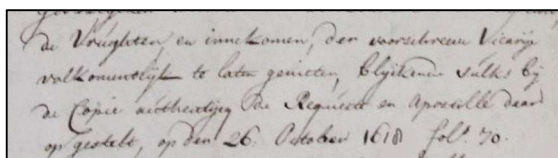 de Vrughten, en innekomen, der voorschreeve Vicarije
volkomentlijk te laten genieten, blijkende sulks bij
de Copie authentijcq de Requeste en Apostille daar
op gestelt, op den 26. October 1618 fol.° 70.